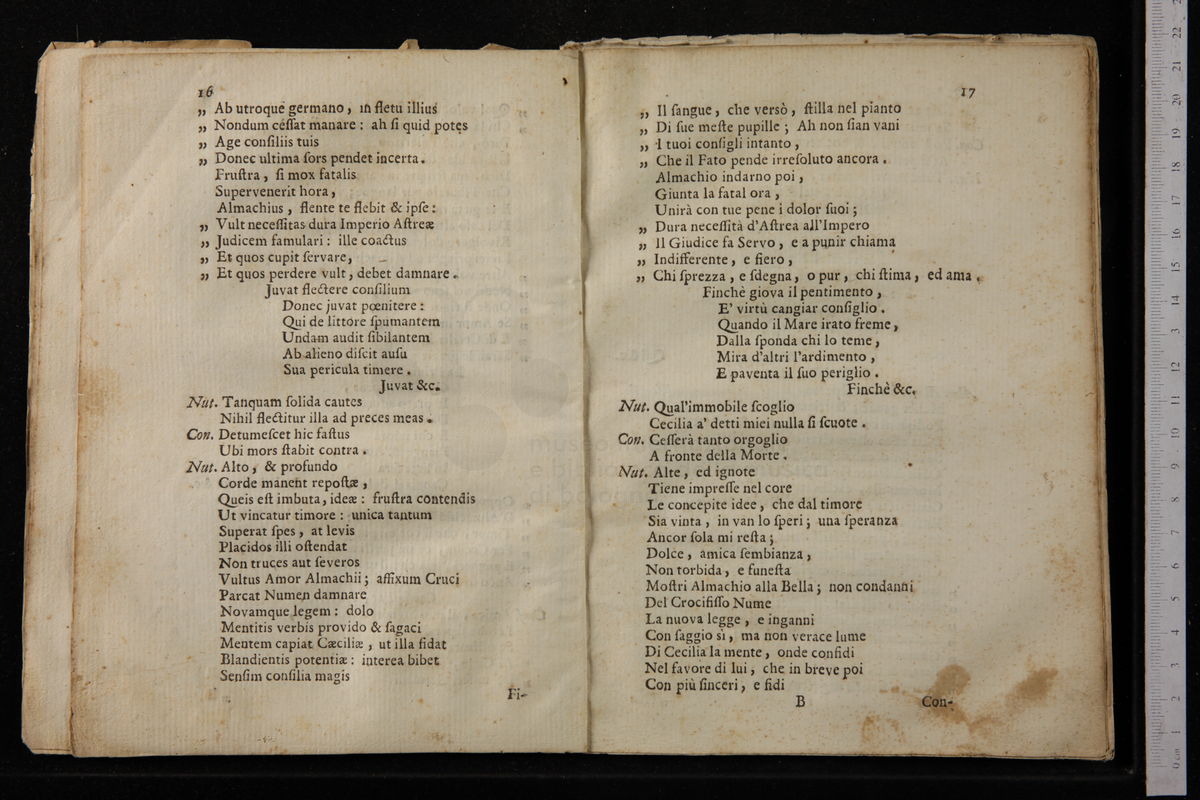 16
„ Ab utroque germano, in fletu illius
„ Nondum ceſſat manare: ah ſi quid potes
„ Age conſiliis tuis
„ Donec ultima ſors pendet incerta.
Fruſtra, ſi mox fatalis
Supervenerit hora,
Almachius, flente te flebit & ipſe:
„ Vult neceſſitas dura Imperio Aſtreæ
„ Judicem famulari: ille coactus
„ Et quos cupit ſervare,
„ Et quos perdere vult, debet damnare.
Juvat flectere conſilium
Donec juvat pœnitere:
Qui de littore ſpumantem
Undam audit ſibilantem
Ab alieno diſcit auſu
Sua pericula timere.
Juvat &c.
Nut. Tanquam ſolida cautes
Nihil flectitur illa ad preces meas.
Con. Detumeſcet hic faſtus
Ubi mors ſtabit contra.
Nut. Alto, & profundo
Corde manent repoſtæ,
Queis eſt imbuta, ideæ: fruſtra contendis
Ut vincatur timore: unica tantum
Superat ſpes, at levis
Placidos illi oſtendat
Non truces aut ſeveros
Vultus Amor Almachii; affixum Cruci
Parcat Numen damnare
Novamque legem: dolo
Mentitis verbis provido & ſagaci
Mentem capiat Cæciliæ, ut illa fidat
Blandientis potentiæ: interea bibet
Senſim conſilia magis
Fi-
17
„ Il ſangue, che versò, ſtilla nel pianto
„ Di ſue meſte pupille; Ah non ſian vani
„ I tuoi conſigli intanto,
„ Che il Fato pende irreſoluto ancora.
Almachio indarno poi,
Giunta la fatal ora,
Unirà con tue pene i dolor ſuoi;
„ Dura neceſſità d'Aſtrea all'Impero
„ Il Giudice fa Servo, e a punir chiama
„ Indifferente, e fiero,
„ Chi ſprezza, e ſdegna, o pur, chi ſtima, ed ama.
Finchè giova il pentimento,
E' virtù cangiar conſiglio.
Quando il Mare irato freme,
Dalla ſponda chi lo teme,
Mira d'altri l'ardimento,
E paventa il ſuo periglio.
Finchè &c.
Nut. Qual'immobile ſcoglio
Cecilia a' detti miei nulla ſi ſcuote.
Con. Ceſſerà tanto orgoglio
A fronte della Morte.
Nut. Alte, ed ignote
Tiene impreſſe nel core
Le concepite idee, che dal timore
Sia vinta, in van lo ſperi; una ſperanza
Ancor ſola mi reſta;
Dolce, amica ſembianza,
Non torbida, e funeſta
Moſtri Almachio alla Bella; non condanni
Del Crocifiſſo Nume
La nuova legge, e inganni
Con ſaggio sì, ma non verace lume
Di Cecilia la mente, onde confidi
Nel favore di lui, che in breve poi
Con più ſinceri, e fidi
B
Con-